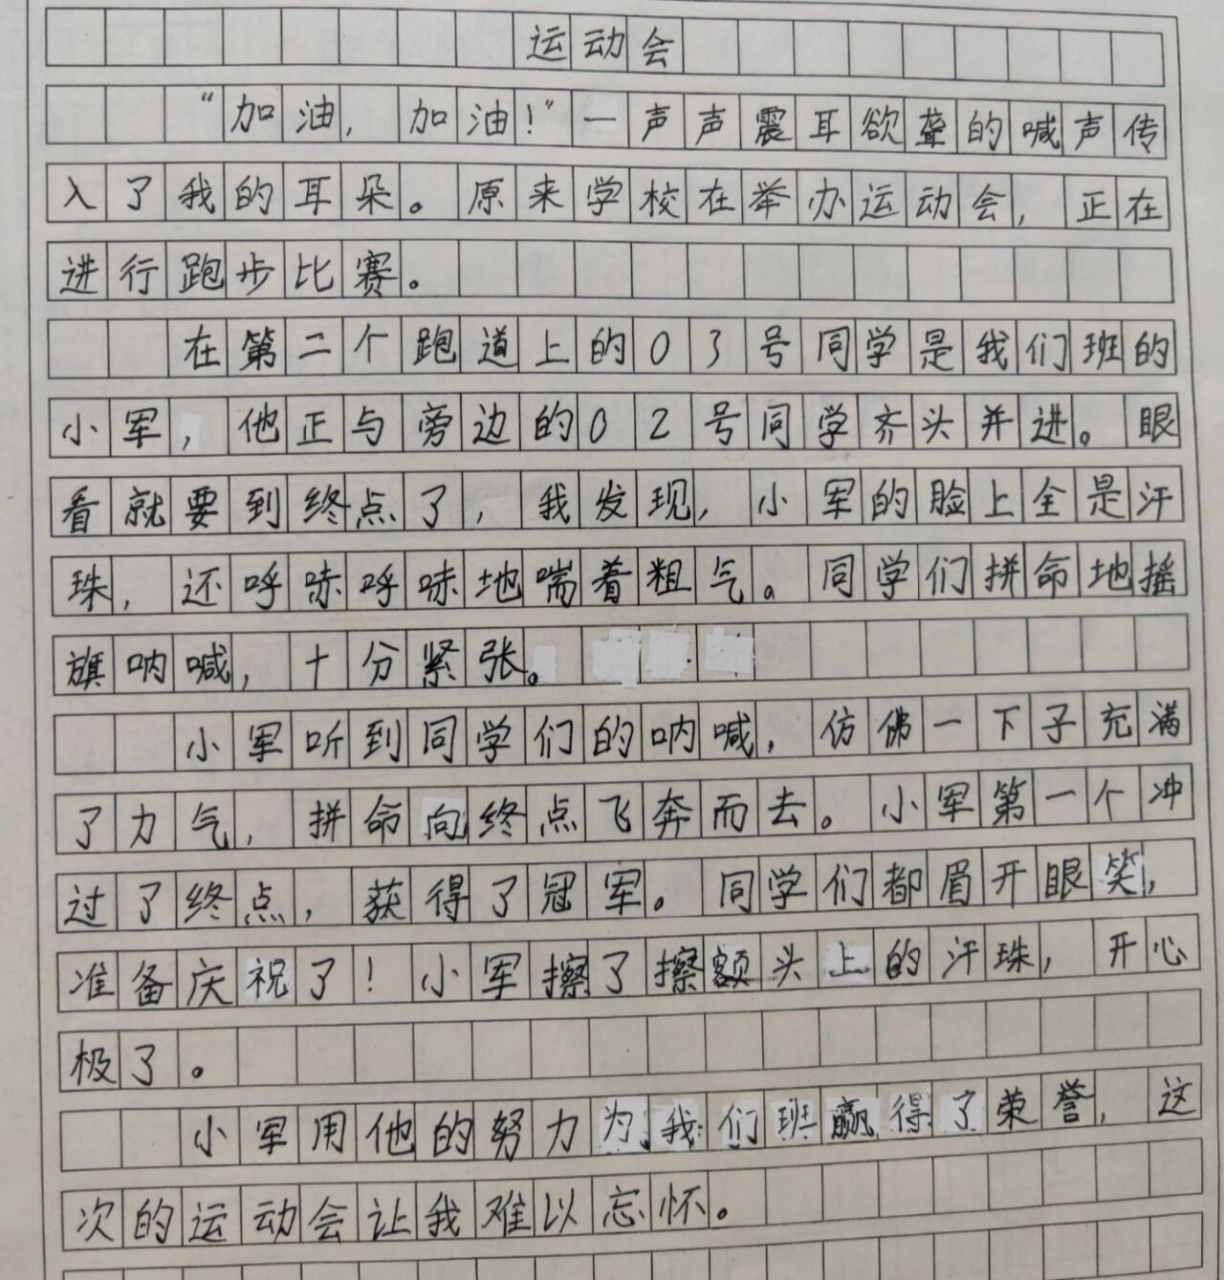 运动会
“加油，加油！”一声声震耳欲聋的喊声传
入了我的耳朵。原来学校在举办运动会，正在
进行跑步比赛。
在第二个跑道上的03号同学是我们班的
小军，他正与旁边的02号同学齐头并进。眼
看就要到终点了，我发现，小军的脸上全是汗
珠，还呼哧呼哧地喘着粗气。同学们拼命地摇
旗呐喊，十分紧张。
小军听到同学们的呐喊，仿佛一下子充满
了力气，拼命向终点飞奔而去。小军第一个冲
过了终点，获得了冠军。同学们都眉开眼笑，
准备庆祝了！小军擦了擦额头上的汗珠，开心
极了。
小军用他的努力为我们班赢得了荣誉，这
次的运动会让我难以忘怀。